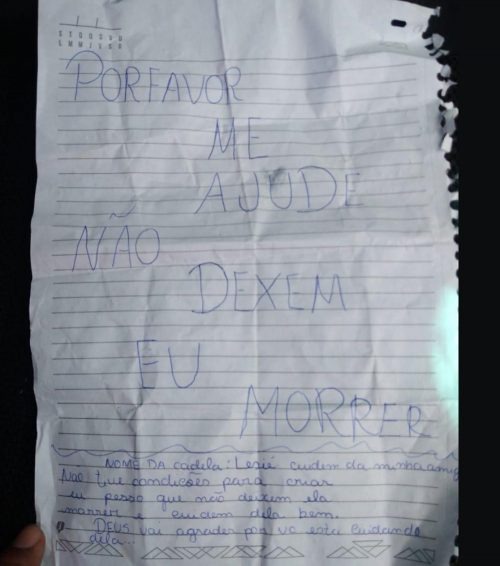 S T Q Q S S D
L M M J V S D
PORFAVOR
ME
AJUDE
NÃO
DEXEM
EU
MORRER
NOME DA cadela: Lessé cuidem da minha amiga
Nao tive condições para criar
eu pesso que não deixem ela
morrer e cuidem dela bem.
DEUS vai agradeser por vc esta cuidando
dela...